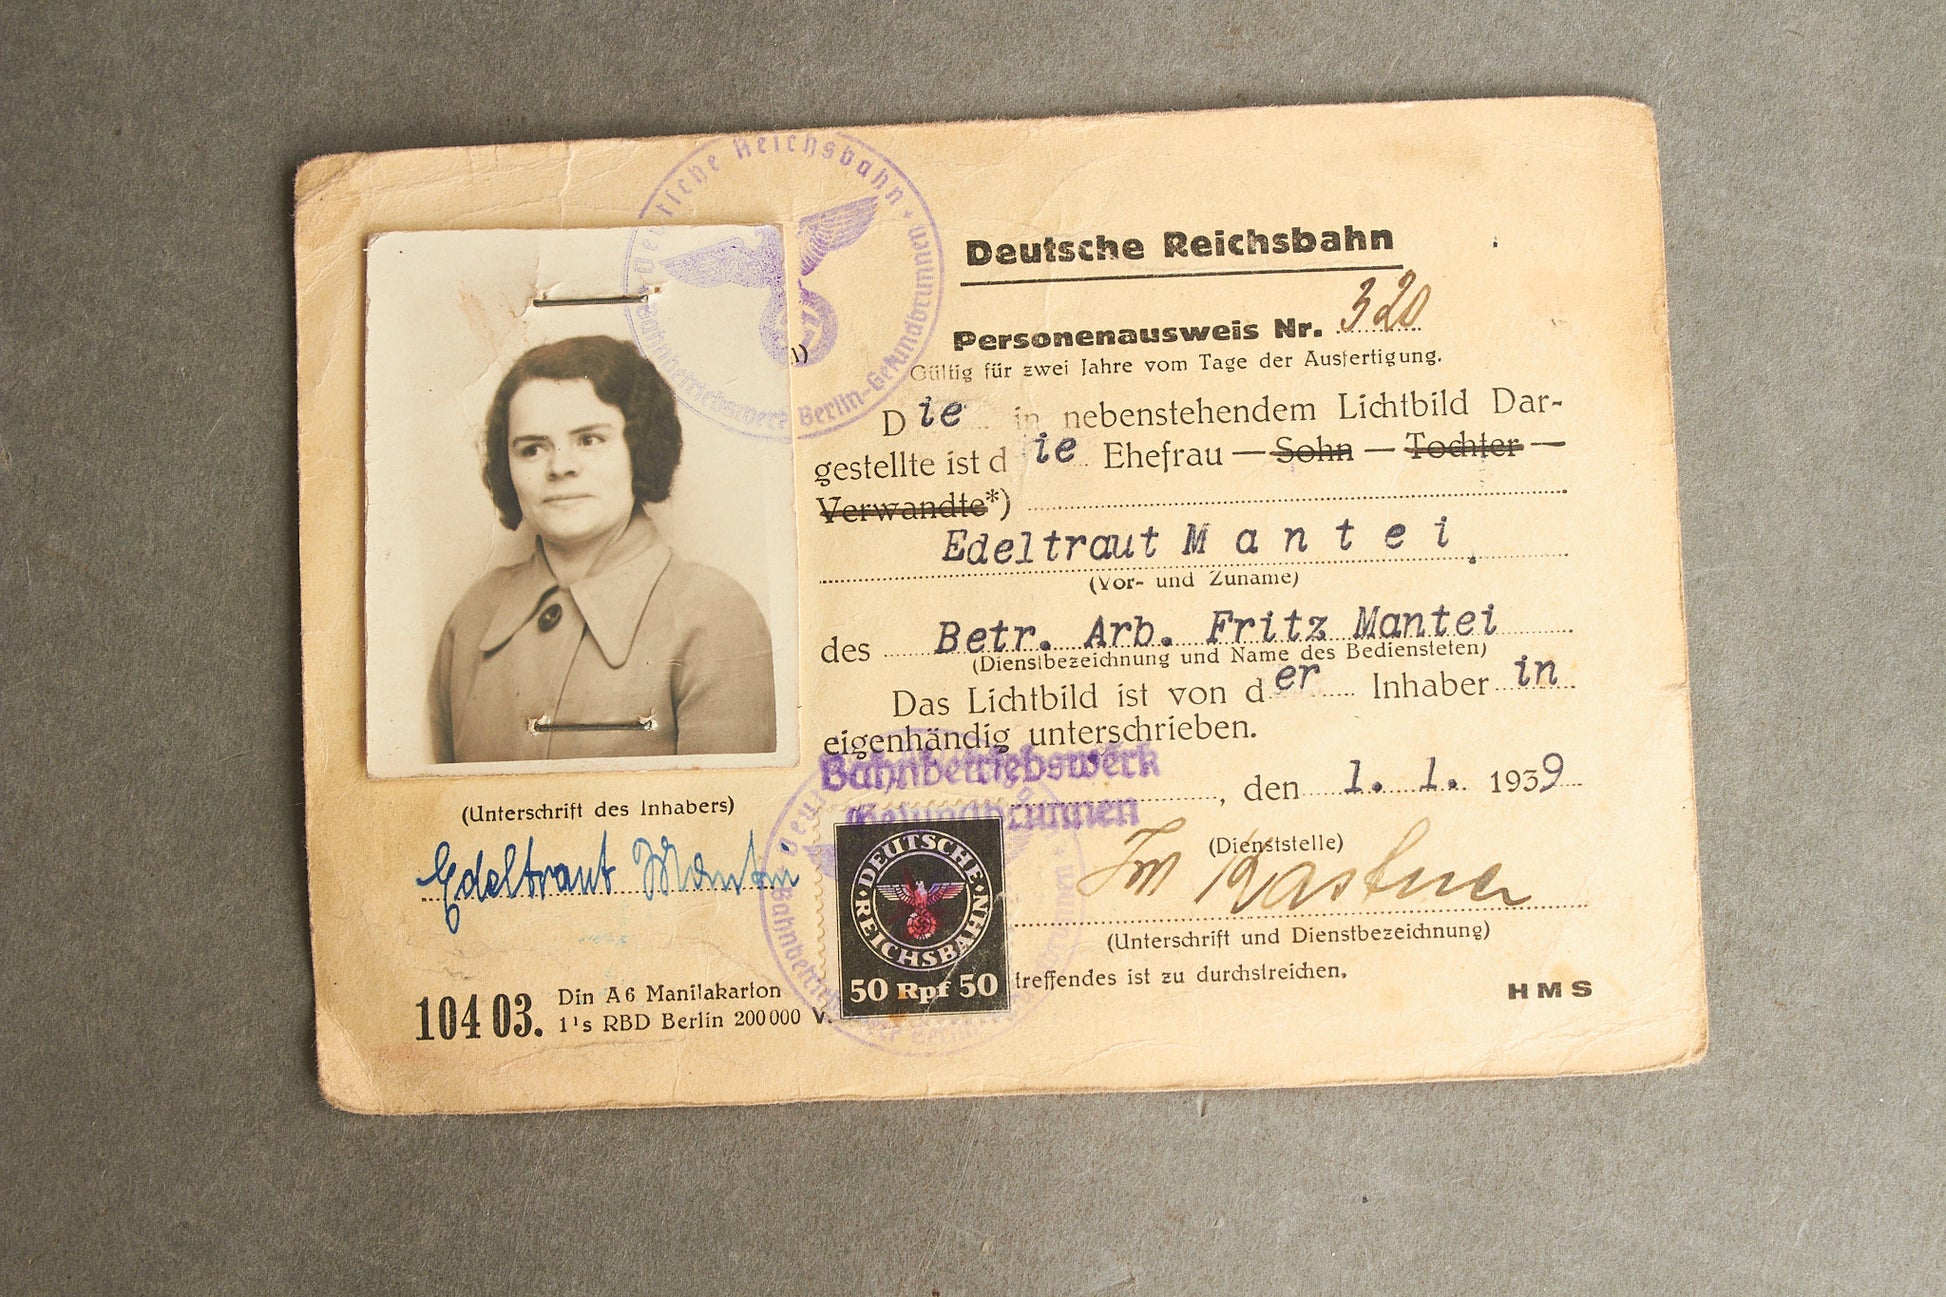 Deutsche Reichsbahn
Personenausweis Nr. 320
Gültig für zwei Jahre vom Tage der Ausfertigung.
Die in nebenstehendem Lichtbild Dar-
gestellte ist die Ehefrau — Sohn — Tochter —
Verwandte*)
Edeltraut Mantei
(Vor- und Zuname)
des Betr. Arb. Fritz Mantei
(Dienstbezeichnung und Name des Bediensteten)
Das Lichtbild ist von der Inhaberin
eigenhändig unterschrieben.
Bahnbetriebswerk
Gesundbrunnen
, den 1. 1. 1939
(Dienststelle)
(Unterschrift und Dienstbezeichnung)
treffendes ist zu durchstreichen.
HMS
(Unterschrift des Inhabers)
Edeltraut Mantei
104 03. Din A6 Manilakarton
RBD Berlin 200 000
Deutsche Reichsbahn
Bahnbetriebswerk Berlin-Gesundbrunnen
DEUTSCHE
REICHSBAHN
50 Rpf 50